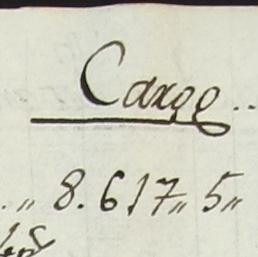 Cargo..
..,, 8.617,, 5,,